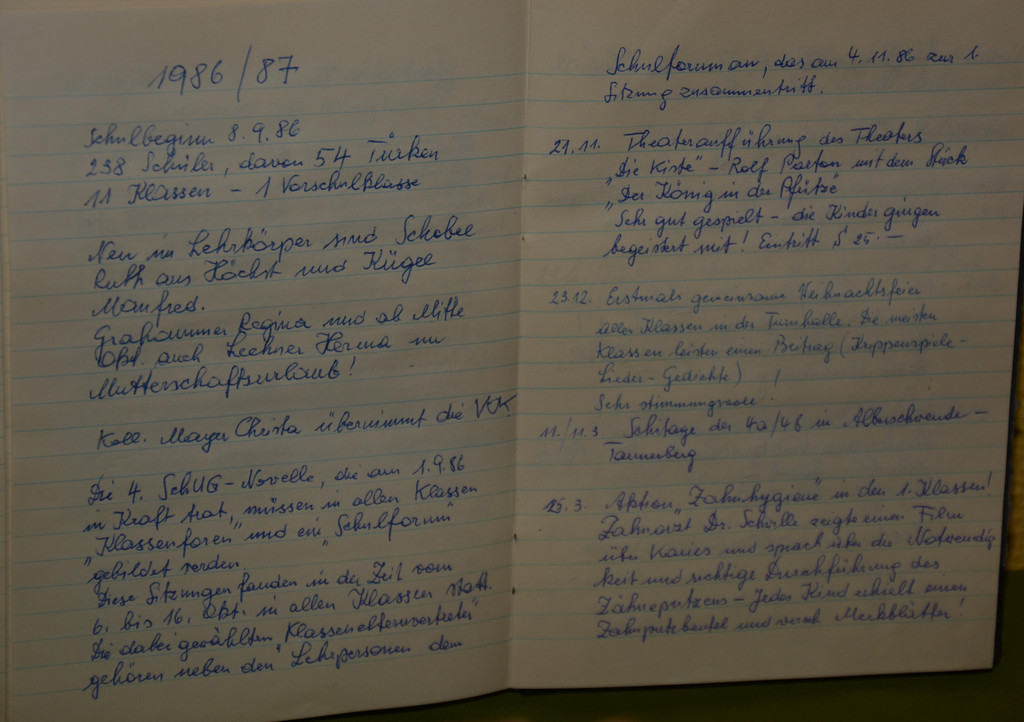 1986/87
Schulbeginn 8.9.86
238 Schüler, davon 54 Türken
11 Klassen - 1 Vorschulklasse
Neu im Lehrkörper sind Schobel
Ruth aus Höchst und Kügel
Manfred.
Grahammer Regina und ab Mitte
Okt. auch Lechner Herma im
Mutterschaftsurlaub!
Koll. Mayer Christa übernimmt die VKK
Die 4. SchUG-Novelle, die am 1.9.86
in Kraft trat, müssen in allen Klassen
„Klassenforen" und ein „Schulforum"
gebildet werden.
Diese Sitzungen fanden in der Zeit vom
6. bis 16. Okt. in allen Klassen statt.
Die dabei gewählten „Klassenelternvertreter"
gehören neben den Lehrpersonen dem
Schulforum an, das am 4.11.86 zur 1.
Sitzung zusammentritt.
21.11. Theateraufführung des Theaters
„Die Kiste" - Rolf Parton mit dem Stück
„Der König in der Pfütze"
Sehr gut gespielt - die Kinder gingen
begeistert mit! Eintritt S 25.-
23.12. Erstmals gemeinsame Weihnachtsfeier
aller Klassen in der Turnhalle. Die meisten
Klassen leisten einen Beitrag (Krippenspiele-
Lieder-Gedichte)
Sehr stimmungsvoll!
11./11.3 Schitage der 4a/4b in Alberschwende -
Tannerberg
25.3. Aktion „Zahnhygiene" in den 1. Klassen!
Zahnarzt Dr. zeigte einen Film
über Karies und sprach über die Notwendig
keit und richtige Durchführung des
Zähneputzens - Jedes Kind erhielt einen
Zahnputzbeutel und versch. Merkblätter!